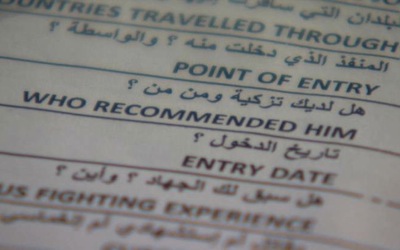 COUNTRIES TRAVELLED THROUGH
المنفذ الذي دخلت منه ؟ والواسطة ؟
POINT OF ENTRY
هل لديك تزكية ومن من ؟
WHO RECOMMENDED HIM
تاريخ الدخول ؟
ENTRY DATE
هل سبق لك الجهاد ؟ وأين ؟
FIGHTING EXPERIENCE